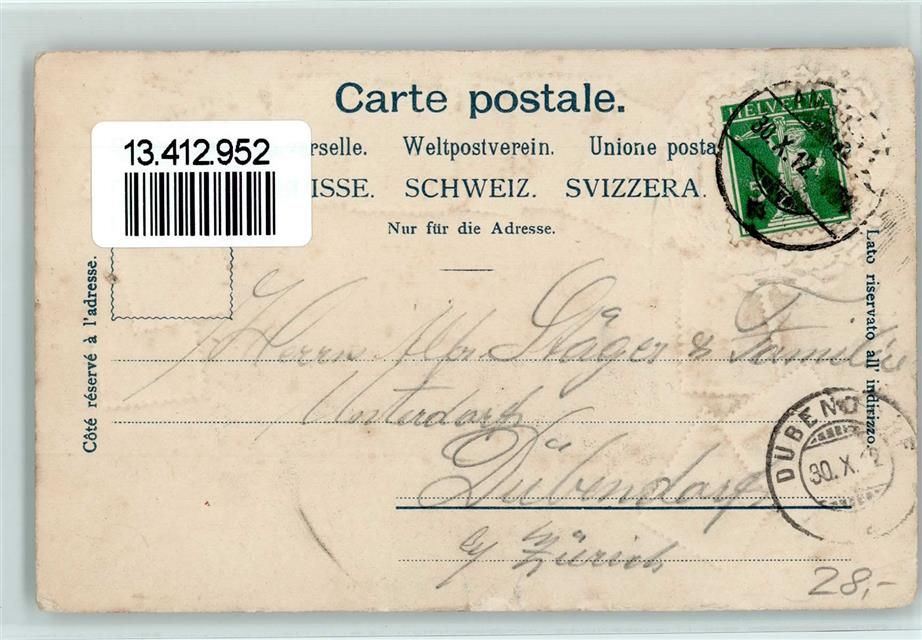 Carte postale.
13.412.952
rselle. Weltpostverein. Unione posta
ISSE. SCHWEIZ. SVIZZERA.
Nur für die Adresse.
HELVETIA
5
30.X.12
Côté réservé à l'adresse.
Lato riservato all' indirizzo.
Herrn Alfr. Stäger & Familie
Unterdorf
Dübendorf
b/ Zürich
DÜBENDORF
30.X.12
28,-